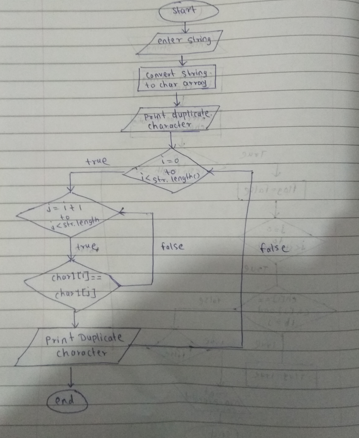 Start
enter string
Convert string
to char array
Print duplicate
character
true
i=0
to
i<str.length()
j = i + 1
to
j<str.length
true
false
false
char1[i]==
char1[j]
Print Duplicate
character
end